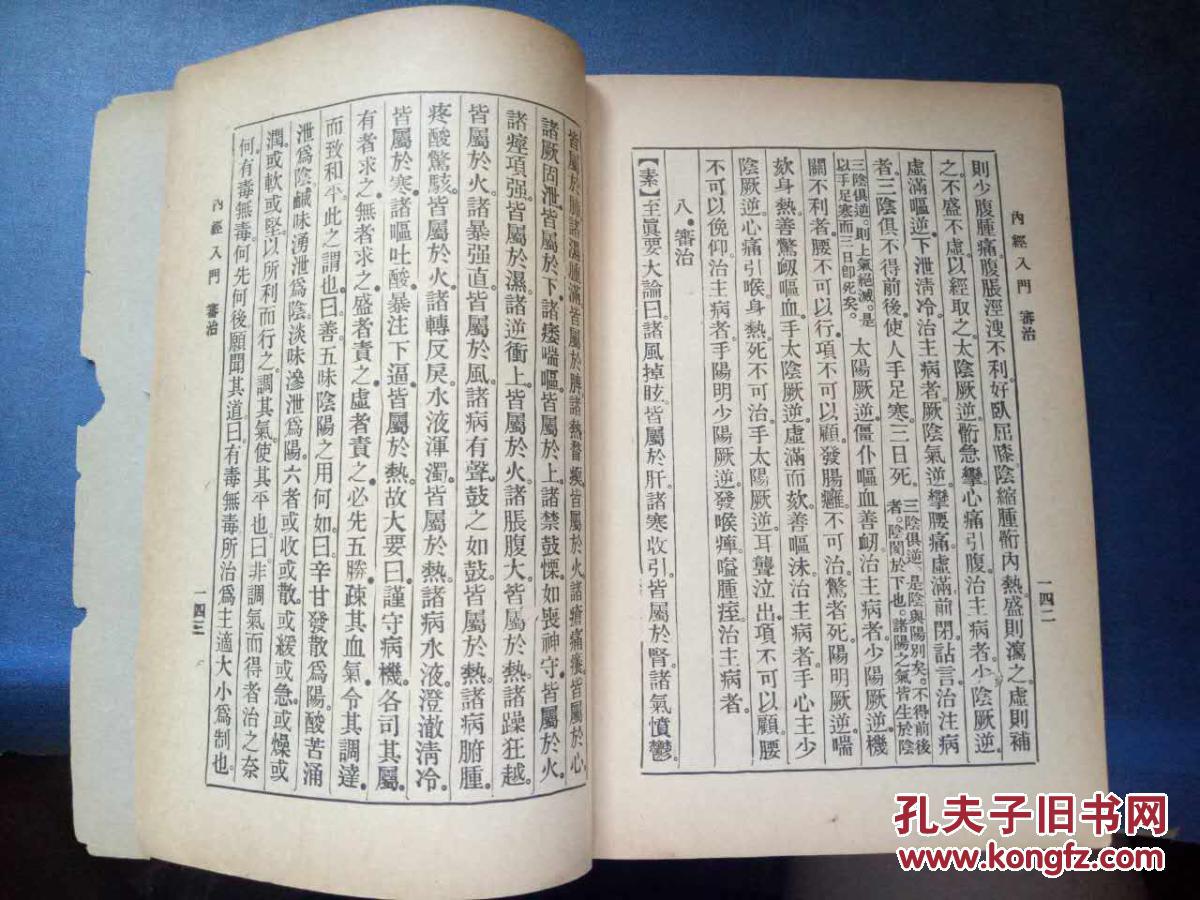 內經入門　審治
一四二
則少腹腫痛。腹脹涇溲不利。好臥屈膝。陰縮腫䯒內熱。盛則瀉之。虛則補
之。不盛不虛。以經取之。太陰厥逆。䯒急攣。心痛引腹。治主病者。少陰厥逆。
虛滿嘔逆。下泄清冷。治主病者。厥陰氣逆。攣腰痛。虛滿前閉詀言。治注病
者。三陰俱不得前後。使人手足寒。三日死。三陰俱逆、是陰與陽別矣。不得前後者。陰閡於下也。諸陽之氣皆生於陰
三陰俱逆。則上氣絕滅。是以手足寒而三日即死矣。太陽厥逆。僵仆嘔血善衂。治主病者。少陽厥逆。機
關不利者。腰不可以行。項不可以顧。發腸癰。不可治。驚者死。陽明厥逆。喘
欬身熱。善驚衂嘔血。手太陰厥逆。虛滿而欬。善嘔沫。治主病者。手心主少
陰厥逆。心痛引喉。身熱死。不可治。手太陽厥逆。耳聾泣出。項不可以顧。腰
不可以俛仰。治主病者。手陽明少陽厥逆。發喉痺。嗌腫痓。治主病者。
八．審治
【素】至眞要大論曰。諸風掉眩。皆屬於肝。諸寒收引。皆屬於腎。諸氣憤鬱。
皆屬於肺。諸濕腫滿。皆屬於脾。諸熱瞀瘈。皆屬於火。諸瘡痛癢。皆屬於心。
諸厥固泄。皆屬於下。諸痿喘嘔。皆屬於上。諸禁鼓慄。如喪神守。皆屬於火。
諸痙項强。皆屬於濕。諸逆衝上。皆屬於火。諸脹腹大。皆屬於熱。諸躁狂越。
皆屬於火。諸暴强直。皆屬於風。諸病有聲。鼓之如鼓。皆屬於熱。諸病腑腫。
疼酸驚駭。皆屬於火。諸轉反戾。水液渾濁。皆屬於熱。諸病水液。澄澈清冷。
皆屬於寒。諸嘔吐酸。暴注下逼。皆屬於熱。故大要曰。謹守病機。各司其屬。
有者求之。無者求之。盛者責之。虛者責之。必先五勝。疎其血氣。令其調達。
而致和平。此之謂也。曰善。五味陰陽之用何如。曰辛甘發散爲陽。酸苦涌
泄爲陰。鹹味湧泄爲陰。淡味滲泄爲陽。六者或收或散。或緩或急。或燥或
潤。或軟或堅。以所利而行之。調其氣使其平也。曰非調氣而得者。治之奈
何。有毒無毒。何先何後。願聞其道。曰有毒無毒。所治爲主。適大小爲制也。
內經入門　審治
一四三
孔夫子旧书网
www.kongfz.com